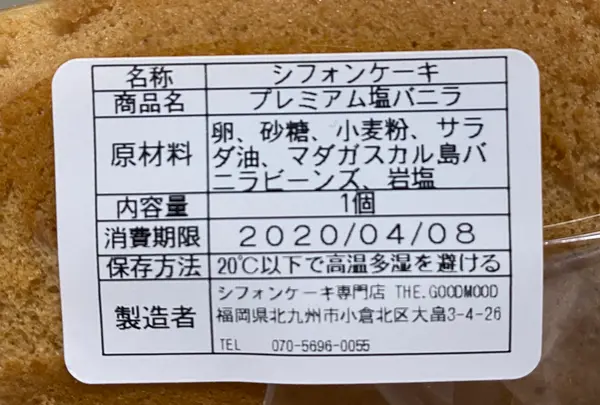 名称 シフォンケーキ
商品名 プレミアム塩バニラ
原材料 卵、砂糖、小麦粉、サラ
ダ油、マダガスカル島バ
ニラビーンズ、岩塩
内容量 1個
消費期限 2020/04/08
保存方法 20℃以下で高温多湿を避ける
製造者 シフォンケーキ専門店 THE.GOODMOOD
福岡県北九州市小倉北区大畠3-4-26
TEL 070-5696-0055